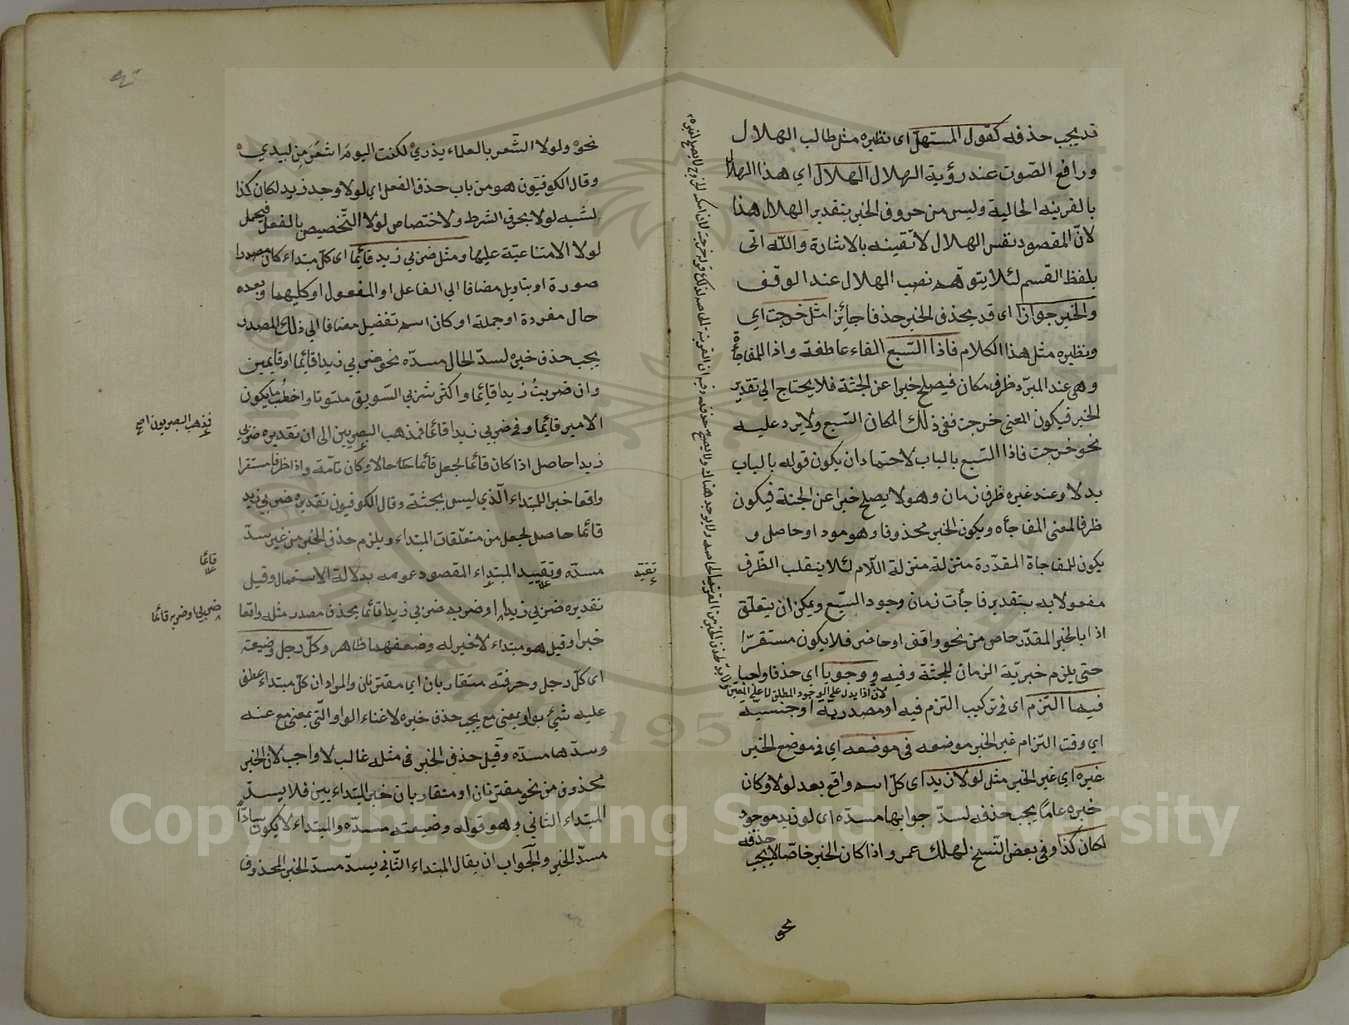 قد يجب حذفه كقول المستهل اى نظيره مثل طالب الهلال
ورافع الصوت عند رؤية الهلال الهلال اي هذا الهلال
بالقرينه الحالية وليس من حروف الخبر بتقدير الهلال هذا
لانّ المقصود نفس الهلال لا تعينه بالاشارة والله اتى
بلفظ القسم لئلا يتوهم نصب الهلال عند الوقف
والخبر جوازا اى قد يحذف الخبر حذفا جائزا مثل خرجت اي
ونظيره مثل هذا الكلام فاذا السبع الفاء عاطفة واذا للمفاجاة
وهي عند المبرد ظرف مكان فيصلح خبرا عن الجثة فلا يحتاج الي تقدير
الخبر فيكون المعنى خرجت ففي ذلك المكان السبع ولا يرد عليه
نحو خرجت فاذا السبع بالباب لاحتماد ان يكون قوله بالباب
بدلا وعند غيره ظرف زمان وهو لا يصلح خبرا عن الجثة فيكون
ظرفا لمعنى المفاجأه ويكون الخبر محذوفا وهو موجود او حاصل و
يكون للمفاجاة المقدّرة منزلة منزلة اللّام لئلا ينقلب الظّرف
مفعولا به بتقدير فاجأت زمان وجود السبع ويمكن ان يتعلق
اذا بالخبر المقدّر خاص من نحو واقف او حاضر فلا يكون مستقرّا
حتى يلزم خبريّة الزمان للجثة وفيه ووجوبا اي حذفا واجبا
لانّ اذا يدل على الوجود المطلق لا على المعين
فيما التزم اى في تركيب التزم فيه او مصدريّة او جنسيّة
اي وقت التزام غير الخبر موضعه في موضعه اي في موضع الخبر
غيره اي غير الخبر مثل لولا زيد اى كل اسم واقع بعد لولا وكان
خبره عامّا يجب حذفه لسدّ جوابها مسدّه اى لو زيد موجود
لكان كذا وفى بعض النسخ لهلك عمر واذا كان الخبر خاصّا لا يجب حذفه
نحو
نحوه ولولا الشّعر بالعلماء يذري لكنت اليوم اشعر من لبيدي
وقال الكوفيّون هو من باب حذف الفعل اي لولا وجد زيد لكان كذا
لشبه لولا بحرف الشرط ولاختصاص لولا التّخصيص بالفعل فيحمل
لولا الامتناعيّة عليها ومثل ضربي زيدا قائما اى كلّ مبتداء كان مصدرا
صورة او بتاويل مضافا الي الفاعل او المفعول او كليهما وبعده
حال مفردة او جملة او كان اسم تفضيل مضافا الى ذلك المصدر
يجب حذف خبره لسدّ الحال مسدّه نحو ضربي زيدا قائما او قايمين
وان ضربتُ زيدا قائما واكثر شربي السّويق ملتوتا واخطب ما يكون
الامير قائما وفى ضربي زيدا قائما فمذهب البصريين الى ان تقديره ضربي
زيدا حاصل اذا كان قائما لجعل قائما حالا وكان تامّة واذا ظرفا مستقرا
واقعا خبر المبتداء الّذي ليس بجثة وقال الكوفيون تقديره ضربي زيد
قائما حاصل لجعل من متعلّقات المبتداء ويلزم حذف الخبر من غير سدّ
مسدّه وتقييد المبتداء المقصود عومه بدلالة الاستعمال وقيل
تقديره ضربي زيدا او ضربه ضربي زيدا قائما بحذف مصدر مثله واقعا
خبرا وقيل هو مبتداء لا خبر له وضعفهما ظاهر وكلّ رجل وضيعته
اى كلّ رجل وحرفته متقاربان اي مقترنان والمراد ان كلّ مبتداء عطف
عليه شئ بواو بمعنى مع يجب حذف خبره لاغناء الواو الّتي بمعنى مع عنه
وسدّها مسدّه وقيل حذف الخبر في مثله غالب لا واجب لان الخبر
محذوف من نحو مقترنان او متقاربان خبر المبتداء بين فلا يسدّ
المبتداء الثاني وهو قوله وضيعته مسدّه والمبتداء لا يكون سادّا
مسدّ الخبر والجواب ان يقال المبتداء الثّاني يسدّ مسدّ الخبر المحذوف
فذهب البصريون اصح
قائما
ضربي او ضربه قائما
تقيّد
Copyright © King Saud University
1957